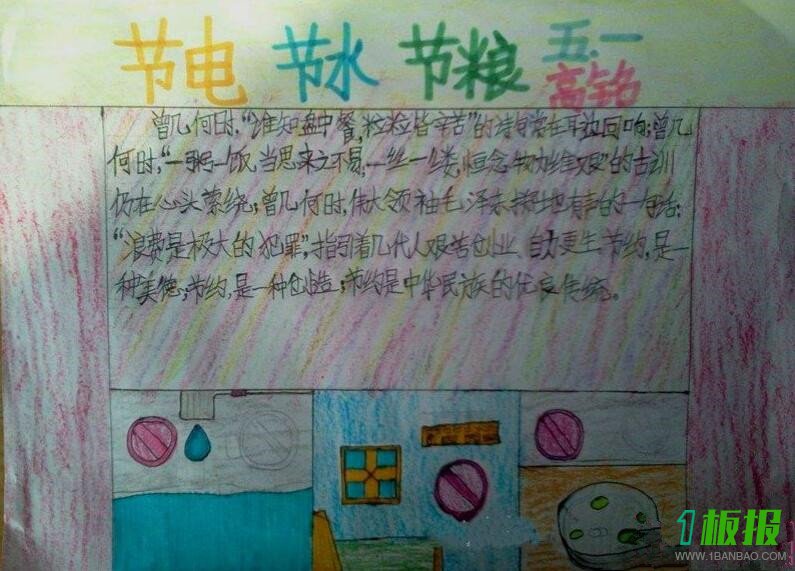 节电 节水 节粮 五.一
高铭
曾几何时,“谁知盘中餐,粒粒皆辛苦”的诗句常在耳边回响;曾几
何时,“一粥一饭,当思来之不易,一丝一缕,恒念物力维艰”的古训
仍在心头萦绕;曾几何时,伟大领袖毛泽东掷地有声的一句话:
“浪费是极大的犯罪”,指引着几代人艰苦创业、自力更生.节约,是一
种美德;节约,是一种创造;节约是中华民族的优良传统。
1板报
WWW.1BANBAO.COM